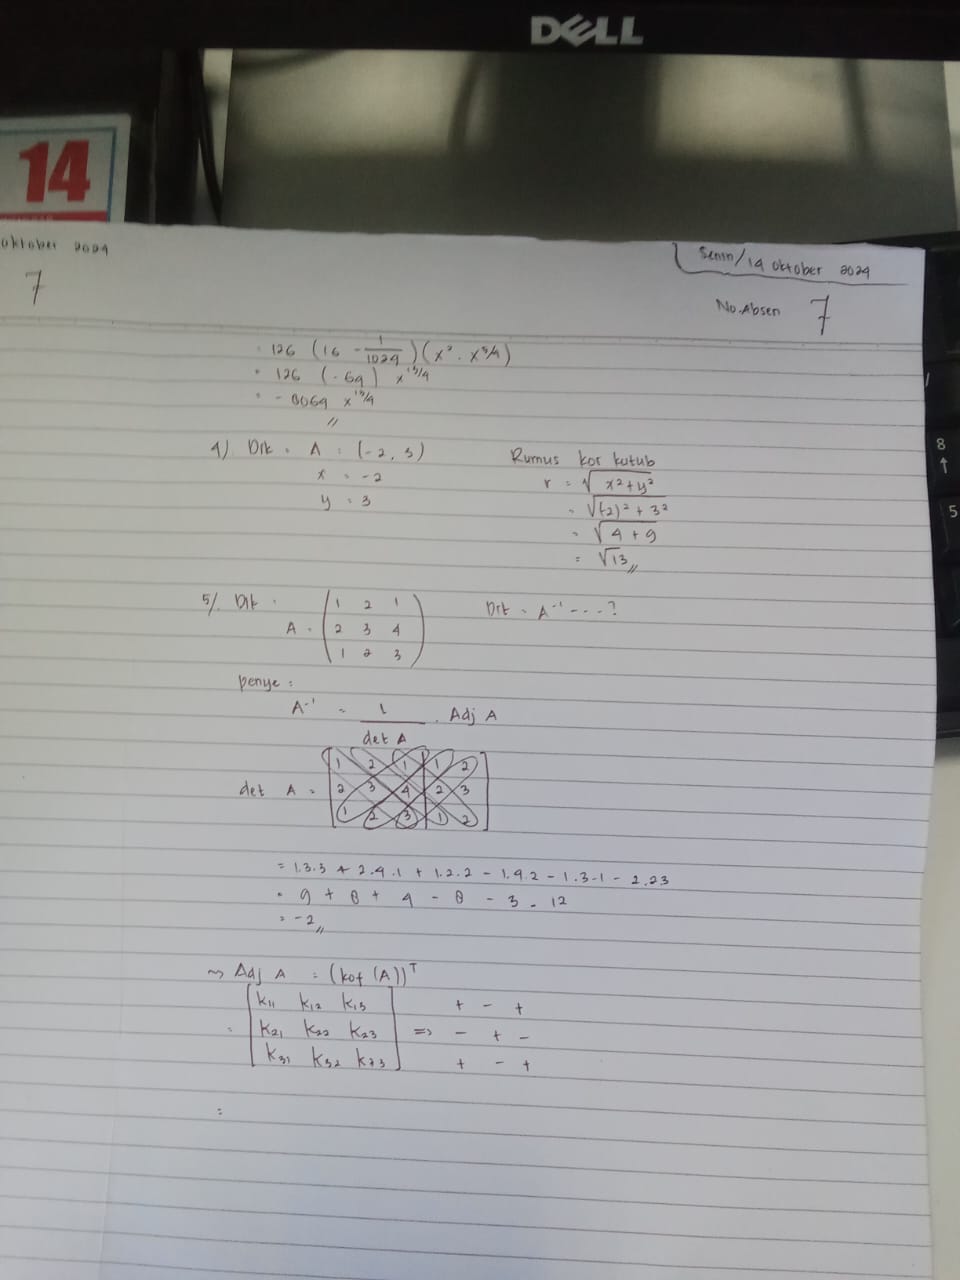 DELL
14
oktober 2024
7
Senin/14 oktober 2024
No.Absen 7
= 126 (16 - 1/1024)(x² . x^5/4)
= 126 (-64) x^13/4
= - 8064 x^13/4
4) Dik = A = (-2, 3)
x = -2
y = 3
Rumus kor kutub
r = √x²+y²
= √(-2)² + 3²
= √4 + 9
= √13
5/. Dik =
A = (1 2 1
2 3 4
1 2 3)
Dit = A⁻¹ - - - ?
penye =
A⁻¹ = 1/det A . Adj A
det A = [1 2 1 | 1 2
2 3 4 | 2 3
1 2 3 | 1 2]
= 1.3.3 + 2.4.1 + 1.2.2 - 1.4.2 - 1.3.1 - 2.23
= 9 + 8 + 4 - 8 - 3 - 12
= -2
~> Adj A = (kof (A))ᵀ
= [K₁₁ K₁₂ K₁₃
K₂₁ K₂₂ K₂₃
K₃₁ K₃₂ K₃₃] => + - +
- + -
+ - +
=
8
↑
5